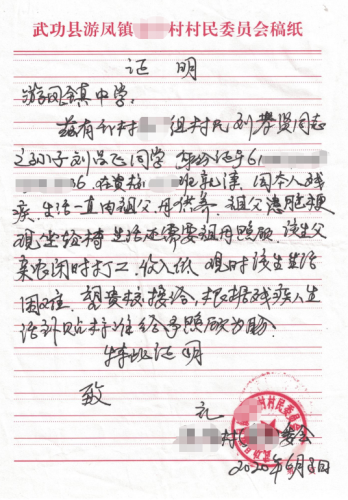 武功县游凤镇 村村民委员会稿纸
证 明
游凤镇中学:
兹有我村 组村民刘 贤同志
之孙子刘 飞同学 身份证号61
36.在贵校 班就读,因本人残
疾,生活一直由祖父母供养,祖父患脑梗
现坐轮椅,生活还需要祖母照顾,该生父
亲农闲时打工,收入低,现时该生生活
困难.望贵校接洽,根据残疾人生
活补贴标准给予照顾为盼.
特此证明
致
礼
村 委会
2020年6月8日